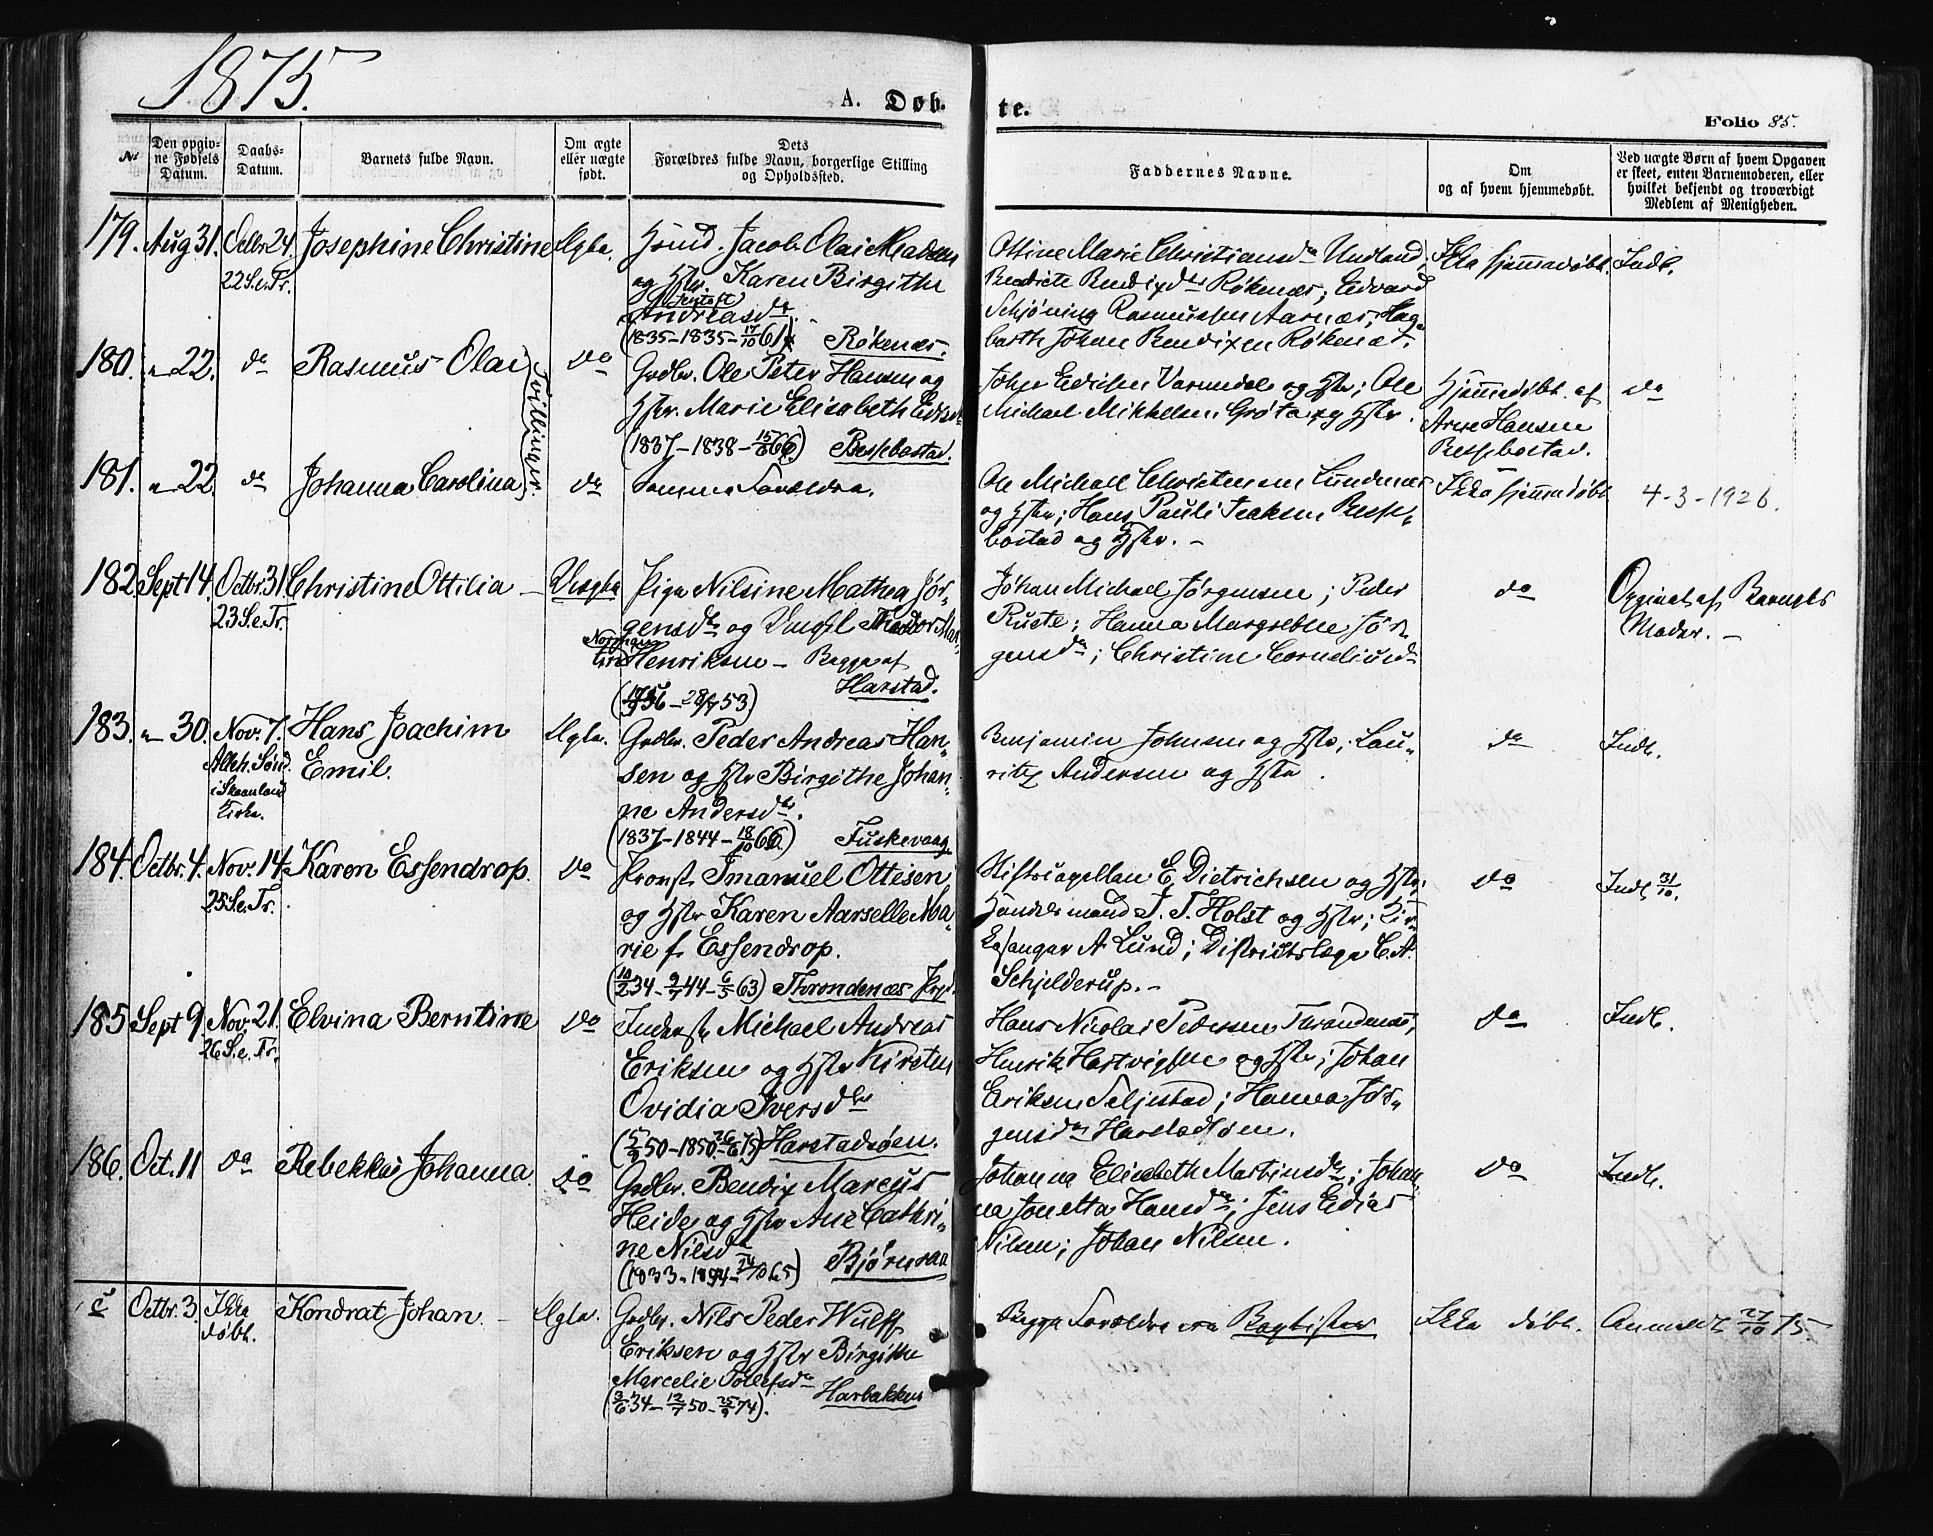 1875.
A. Døb.
te.
Folio 85.
№
Den opgiv-
ne Fødsels
Datum.
Daabs-
Datum.
Barnets fulde Navn.
Om ægte
eller uægte
født.
Dets
Forældres fulde Navn, borgerlige Stilling
og Opholdssted.
Faddernes Navne.
Om
og af hvem hjemmedøbt.
Ved uægte Børn af hvem Opgaven
er skeet, enten Barnemoderen, eller
hvilket bekjendt og troværdigt
Medlem af Menigheden.
179. Aug 31. Octbr 24. Josephine Christine Ægte. Huusm. Jacob Olai Madsen
22 S. e. Tr. og Hstr. Karen Birgithe
Andreasdr.
(1835 – 1835 – 17/10 61) Røkenæs.
Ottine Marie Christiansdr Undland;
Benedicte Bendixdr Røkenæs; Edvard
Schjøning Rasmussen Aarnæs; Hag-
barth Johan Bendixen Røkenæs.
Ikke hjemmedøbt. Indb.
180. " 22. do Rasmus Olai do Grdbr. Ole Peter Hansen og
Tvillinger.
Hstr. Marie Elisabeth
(1837 – 1838 – 15/ 66) Bessebostad.
Johan Edisen Varmedal og Hstr; Ole
Michael Mikkelsen Grøta og Hstr.
Hjemmedøbt af
Arne Hansen
Bessebostad.
do
181. " 22. do Johanna Carolina do Samme Forældre.
Ole Michael Christensen Lundenæs
og Hstr; Hans Pauli Isaksen Besse-
bostad og Hstr. –
Ikke hjemmedøbt 4-3-1926.
182. Sept 14. Octbr 31. Christine Ottilia – Uægte Pige Nilsine Mathea Jør-
23 S. e. Tr. gensdtr og Ungk. Theodor
Henriksen – Begge af
Harstad.
53)
Johan Michael Jørgensen; Peder
Ruste; Hanna Margrethe Jør-
gensdr; Christine Corneliusdr
do
Opgivet af Barnets
Moder. –
183. " 30. Nov. 7. Hans Joachim Ægte. Grdbr. Peder Andreas Han-
Alleh. Sønd. Emil. sen og Hstr Birgithe Johan-
i Skaanland ne Andersdtr.
Kirke.
(1837 – 1844 – 18/10 66) Fuskevaag.
Benjamin Johnsen og Hstr; Lau-
ritz Andersen og Hstr.
do Indb.
184. Octbr. 4. Nov. 14. Karen Essendrop. do Provst Imanuel Ottesen
25 S. e. Tr. og Hstr Karen Aarselle Ma-
rie f. Essendrop.
(10/2 34 – 9/7 44 – 6/5 63) Throndenæs Prgd.
Stiftscapellan E. Dietrichsen og Hstr;
Handelsmand J. T. Holst og Hstr; Kir-
kesanger A. Lund; Distriktslæge C. A.
Schjelderup. –
do Indb 31/10.
185. Sept 9. Nov. 21. Elvina Berntine do Inderst Michael Andreas
26 S. e. Tr. Eriksen og Hstr Kirsten
Ovidia Iversdtr
(5/9 50 – 1850 – 26/6 75) Harstadsøen.
Hans Nicolai Pedersen Trondenæs;
Henrik Hartvigsen og Hstr; Johan
Eriksen Seljestad; Hanna Jør-
gensdr Harstadsøen.
do Indb.
186. Oct. 11 do Rebekka Johanna. do Grdbr. Bendix Marcus
Heide og Hstr Ane Cathri-
ne Nilsdr
(1833 – 1834 – 24/10 65) Bjørnraa
Johanna Elisabeth Martinsdr; Johan-
na Jonetta Hansdr; Jens Edias
Nilsen; Johan Nilsen.
do Indb.
c Octbr. 3. Ikke Kondrat Johan – Ægte. Grdbr. Nils Peder Wulff
døbt. Eriksen og Hstr Birgithe
Marcelie Tollefsdr
(3/6 34 – 12/7 50 – 25/9 74). Harbakken
Begge Forældre ere Baptister Ikke døbt. Anmeldt 27/10 75.